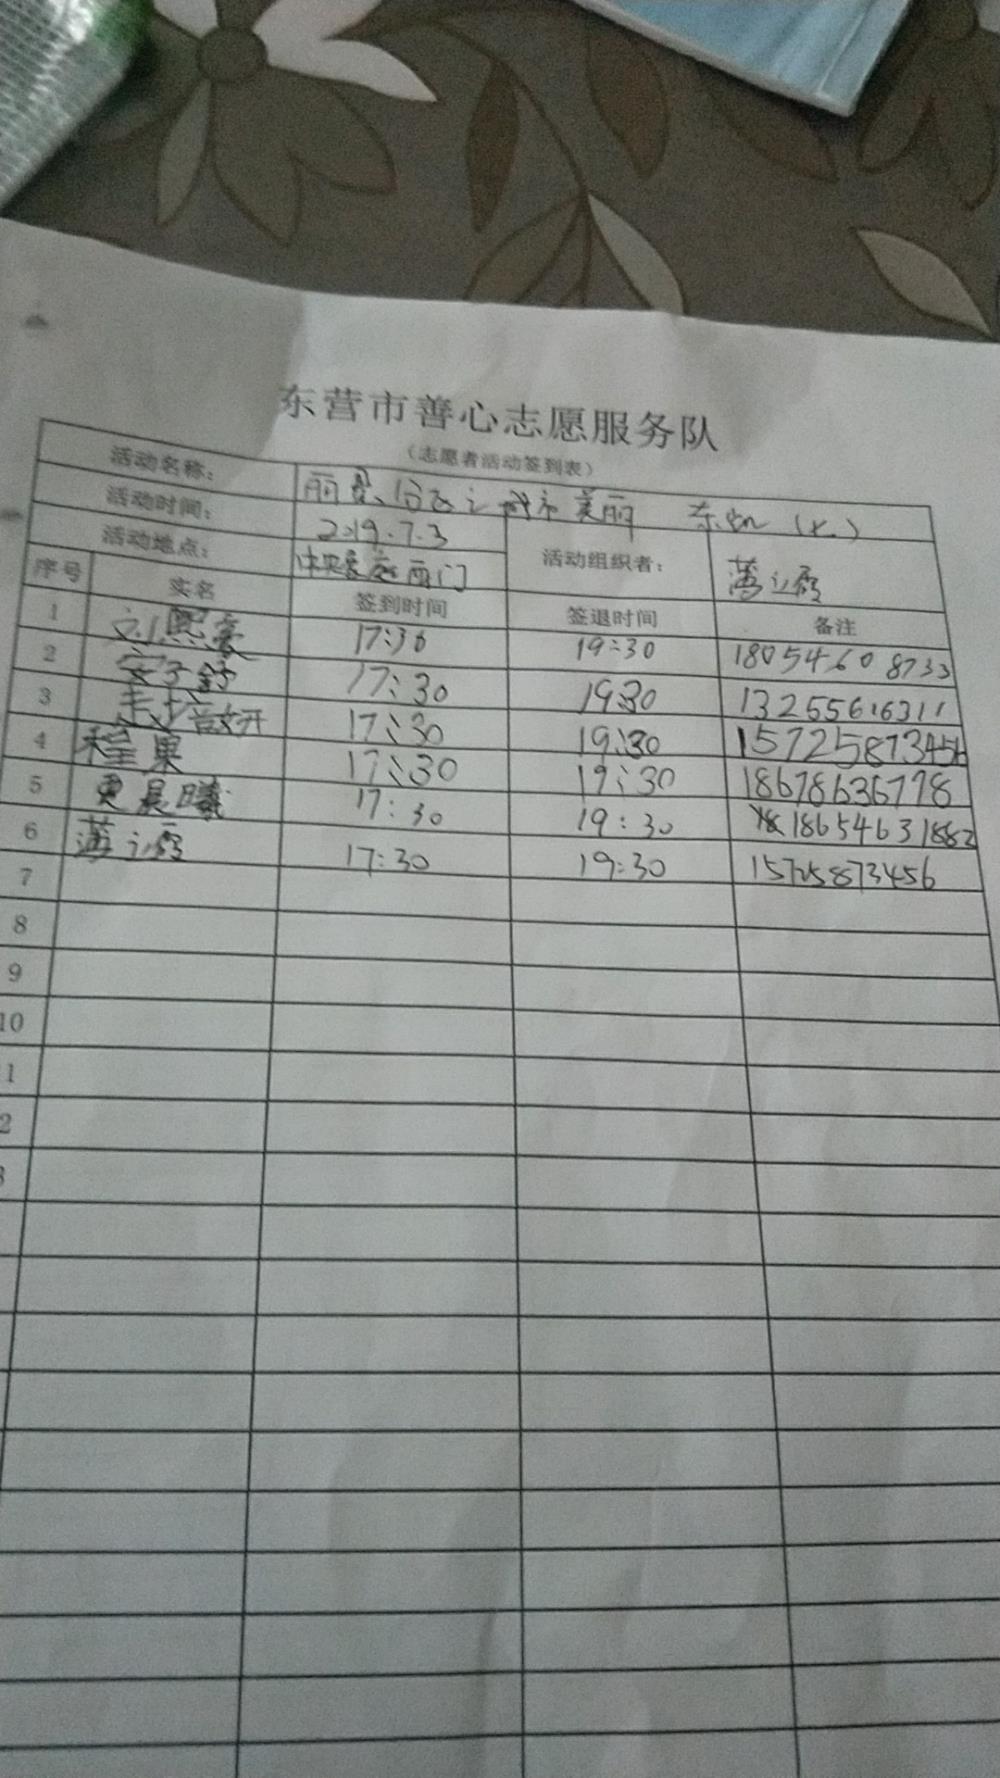 东营市善心志愿服务队
(志愿者活动签到表)
活动名称: 城市美丽
活动时间: 2019.7.3 活动组织者:
活动地点: 西门
序号 实名 签到时间 签退时间 备注
1 刘熙豪 17:30 19:30 18054608733
2 安子舒 17:30 19:30 13255616311
3 17:30 19:30 15725873456
4 程果 17:30 19:30 18678636778
5 晨曦 17:30 19:30 18654631882
6 17:30 19:30 15725873456
7
8
9
10
1
2
3